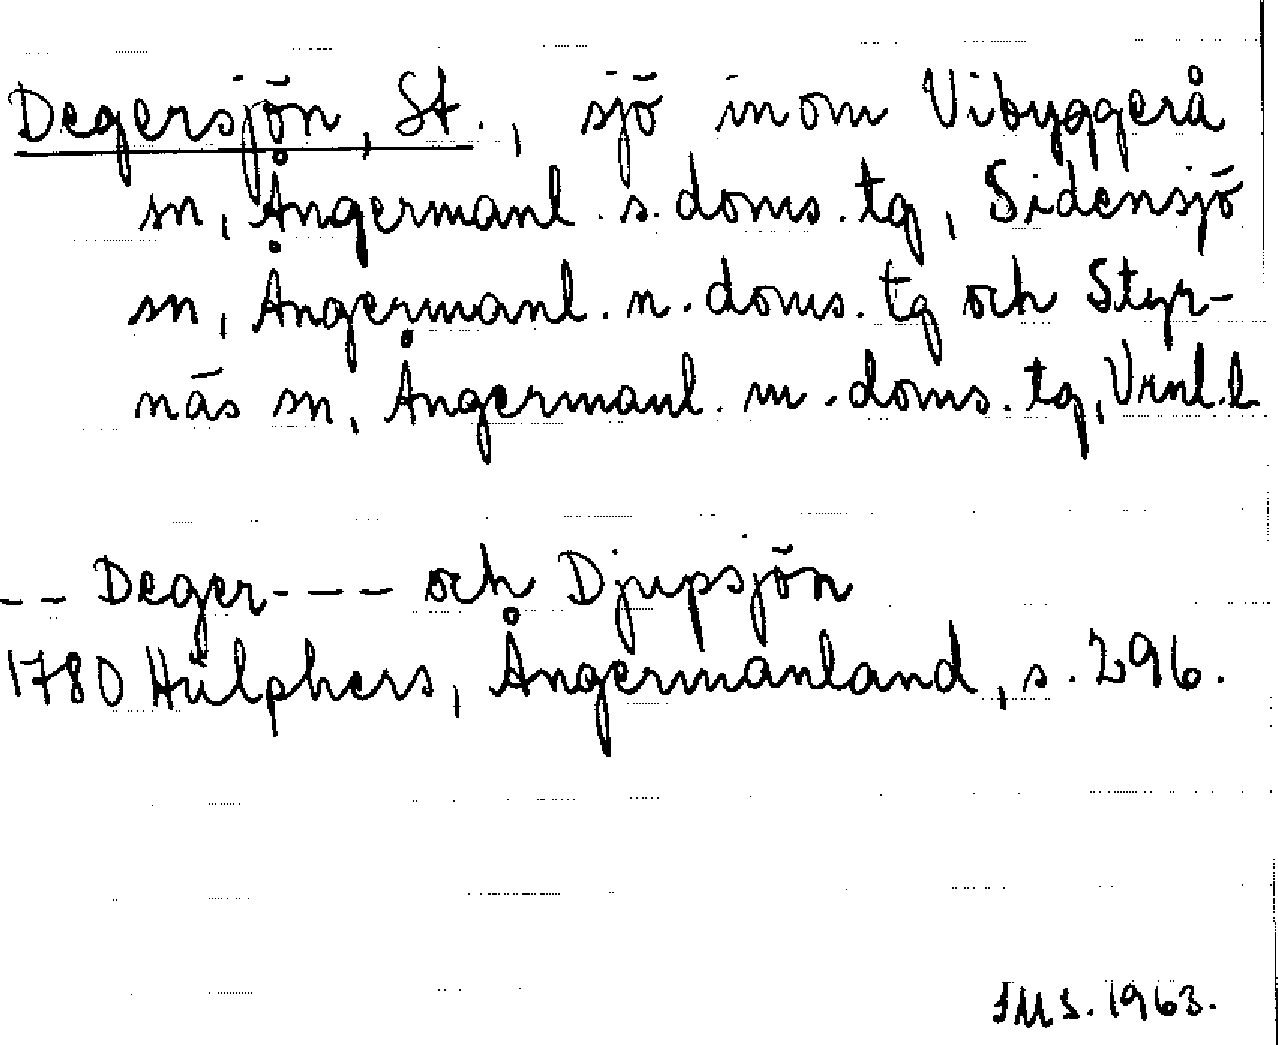 Degersjön, St., sjö inom Vibyggerå
sn, Ångermanl. s. doms. tg, Sidensjö
sn, Ångermanl. n. doms. tg och Styr-
näs sn, Ångermanl. m. doms. tg, Vrnl. l
-- Deger--- och Djupsjön
1780 Hülphers, Ångermanland, s. 296.
IMS. 1963.